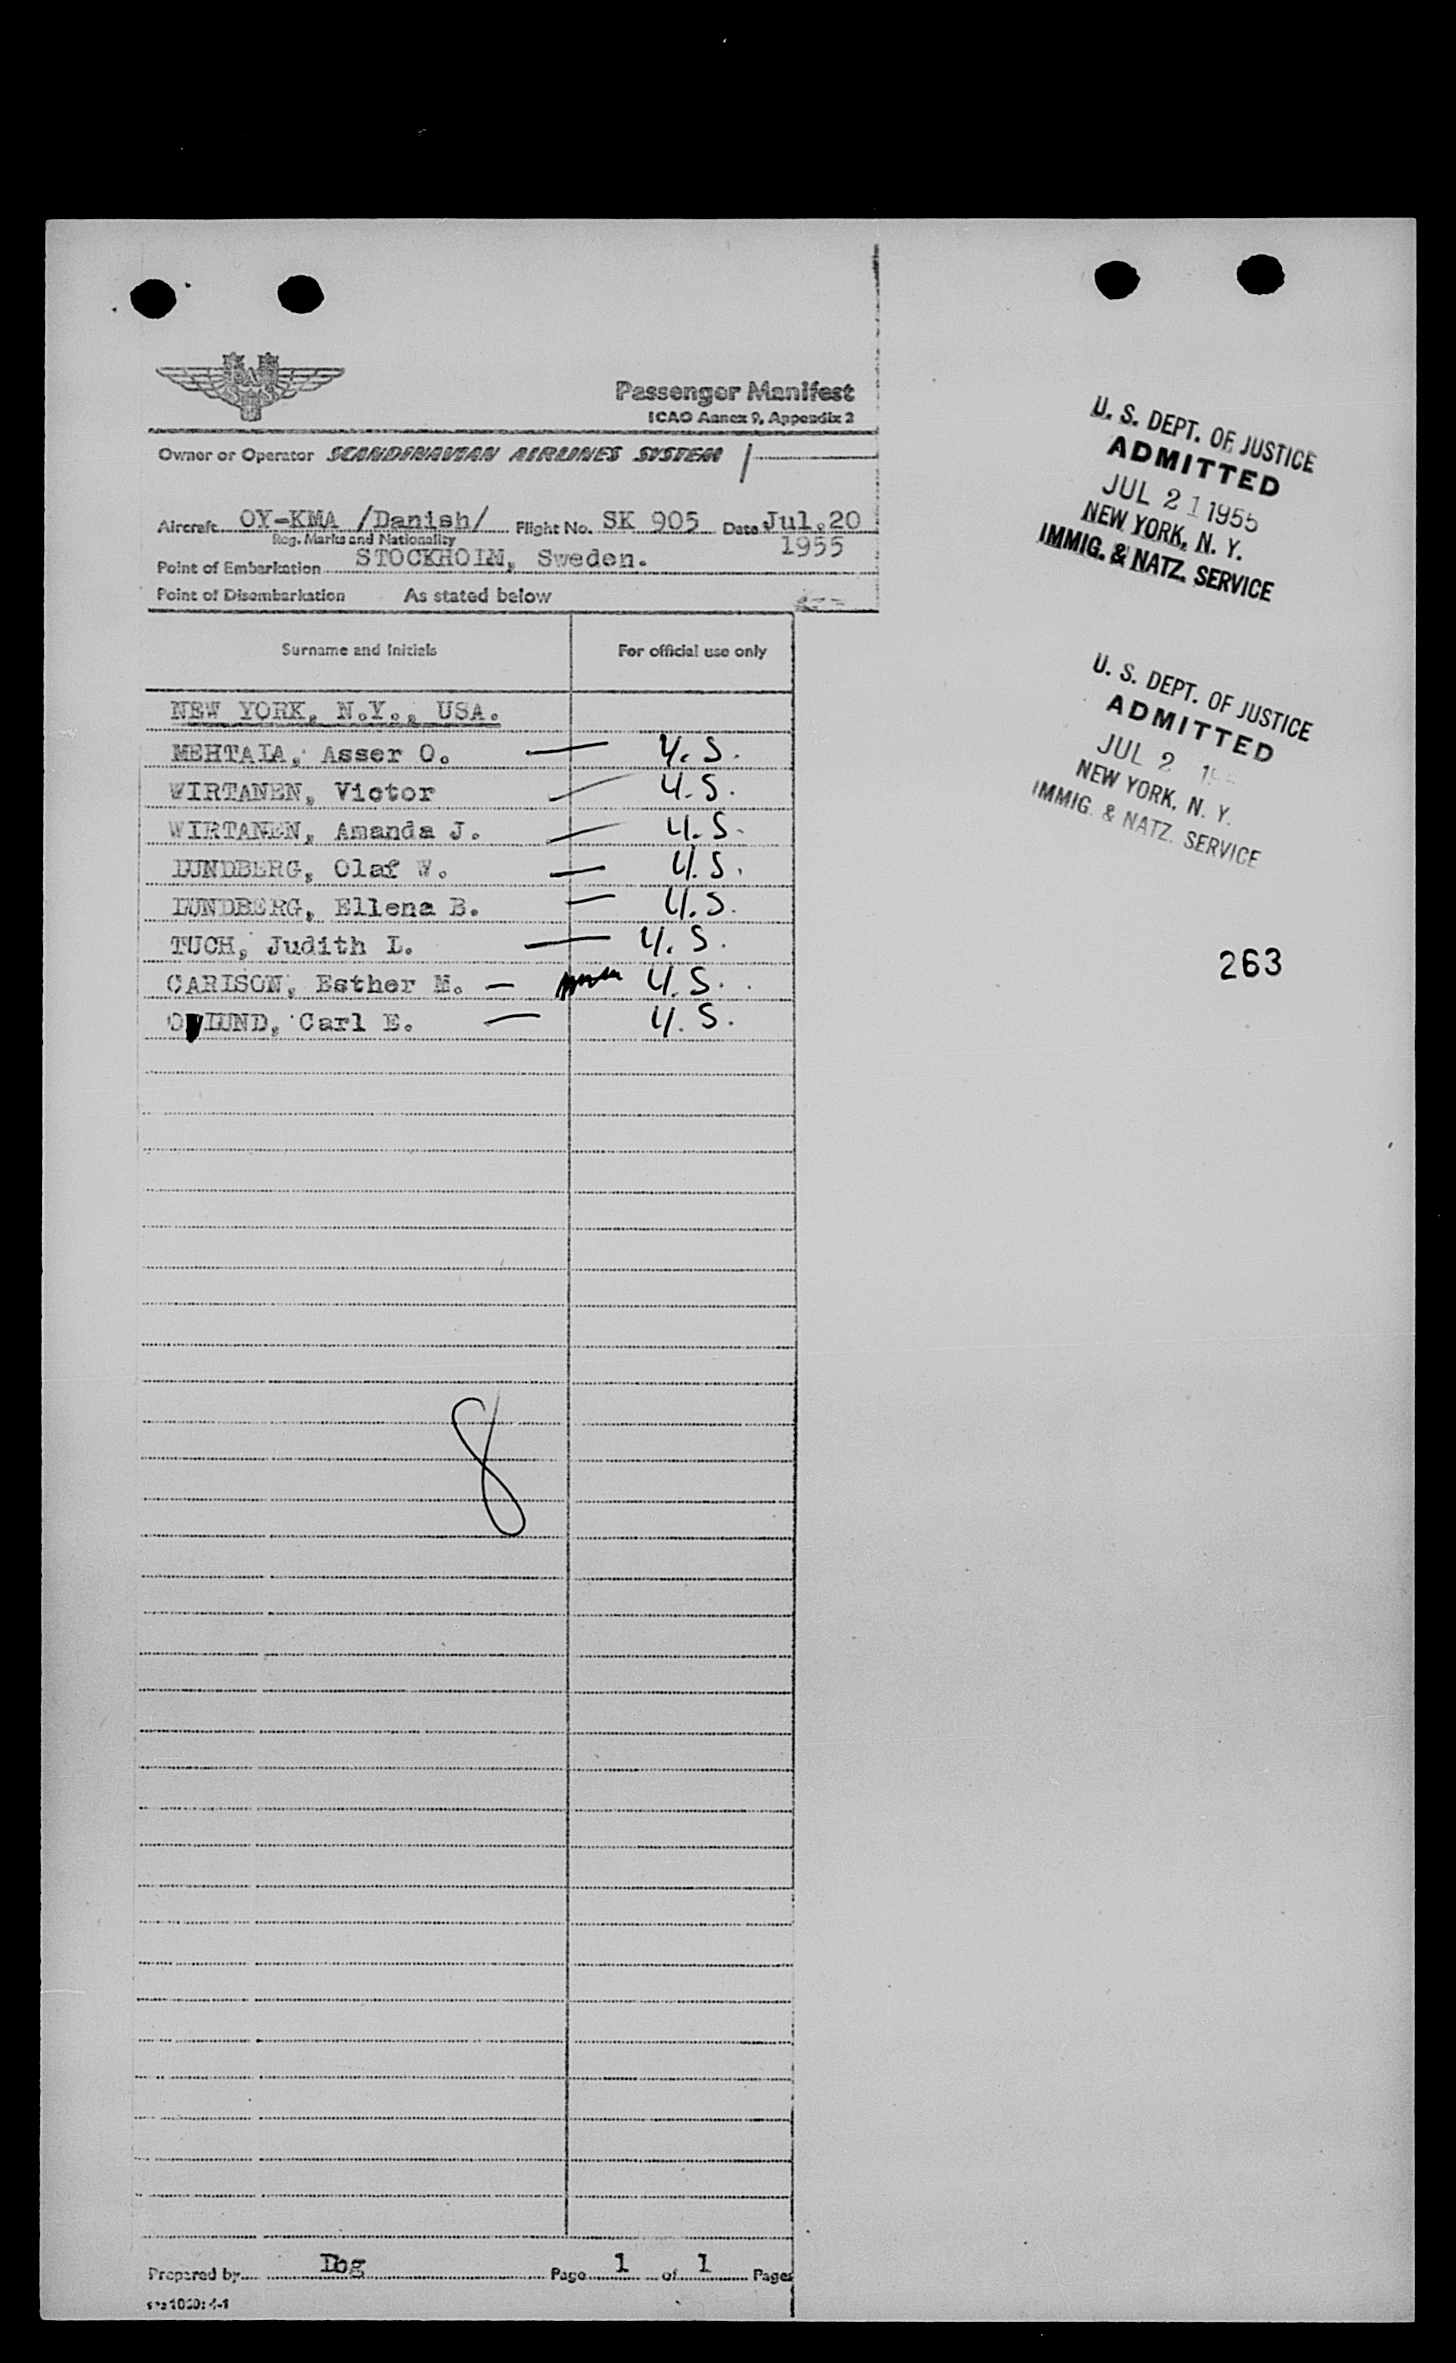 SAS
Passenger Manifest
ICAO Annex 9, Appendix 2
Owner or Operator SCANDINAVIAN AIRLINES SYSTEM
Aircraft OY-KMA /Danish/ Flight No. SK 905 Date Jul.20
Reg. Marks and Nationality 1955
Point of Embarkation STOCKHOLM, Sweden.
Point of Disembarkation As stated below
Surname and Initials For official use only
NEW YORK, N.Y., USA.
MEHTALA, Asser O. U.S.
WIRTANEN, Victor U.S.
WIRTANEN, Amanda J. U.S.
LUNDBERG, Olaf W. U.S.
LUNDBERG, Ellena B. U.S.
TUCH, Judith L. U.S.
CARLSON, Esther M. U.S.
Carl E. U.S.
8
Prepared by Lbg Page 1 of 1 Pages
U. S. DEPT. OF JUSTICE
ADMITTED
JUL 21 1955
NEW YORK, N. Y.
IMMIG. & NATZ. SERVICE
U. S. DEPT. OF JUSTICE
ADMITTED
JUL 2
NEW YORK, N. Y.
IMMIG. & NATZ. SERVICE
263